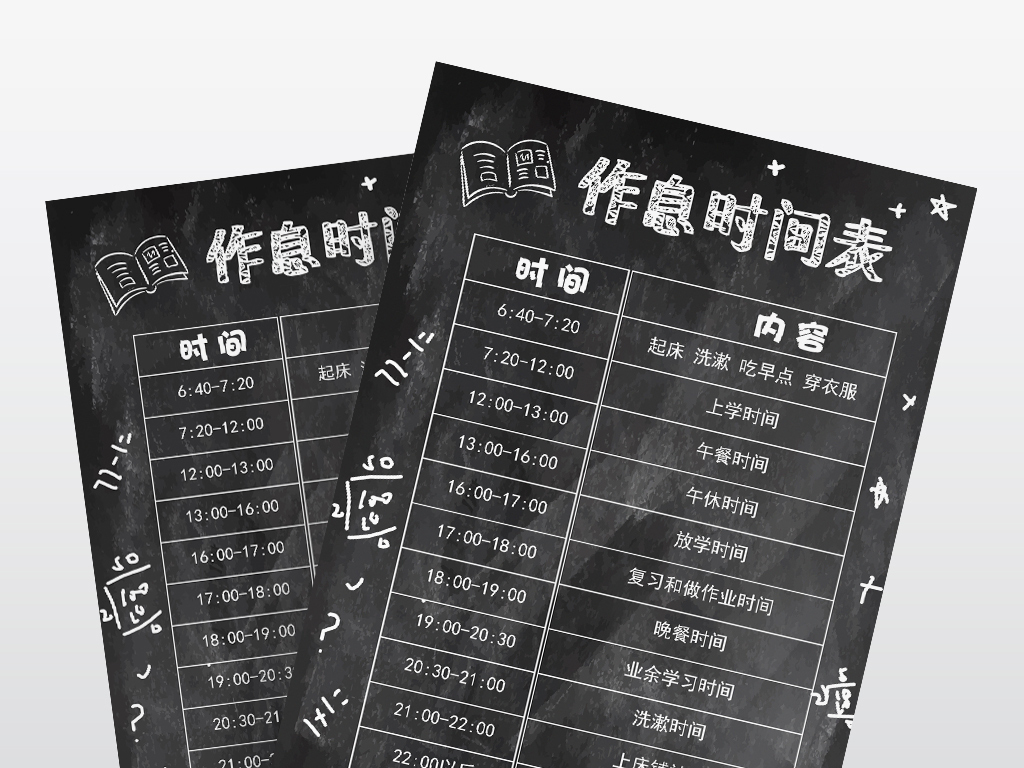 作息时间表
时间 内容
6:40-7:20 起床 洗漱 吃早点 穿衣服
7:20-12:00 上学时间
12:00-13:00 午餐时间
13:00-16:00 午休时间
16:00-17:00 放学时间
17:00-18:00 复习和做作业时间
18:00-19:00 晚餐时间
19:00-20:30 业余学习时间
20:30-21:00 洗漱时间
21:00-22:00
22:00以后
1+1=
?
作息时
时间
6:40-7:20 起床
7:20-12:00
12:00-13:00
13:00-16:00
16:00-17:00
17:00-18:00
18:00-19:00
19:00-20:3
20:30-21
21:00-
?